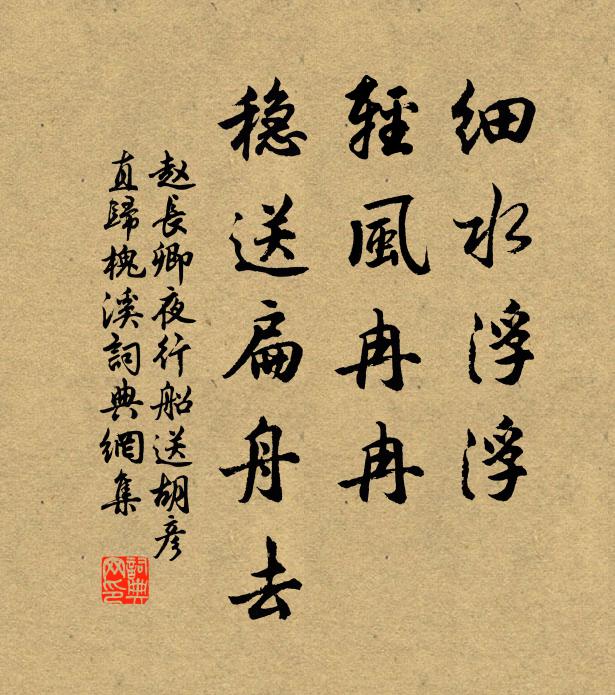 细水浮浮
輕風冉冉
稳送扁舟去
赵長卿夜行船送胡彦
直歸槐溪詞典網集
詞典網印